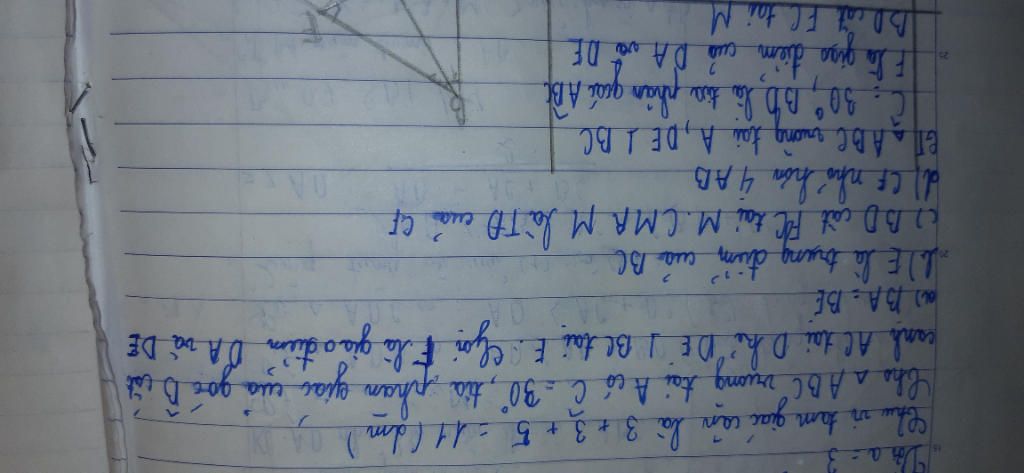 Vậy a = 3
Chu vi tam giác cân là 3 + 3 + 5 = 11 (dm)
Cho △ ABC vuông tại A có Ĉ = 30°, tia phân giác của góc B̂ cắt
cạnh AC tại D kẻ DE ⊥ BC tại E. Gọi F là giao điểm DA và DE
a) BA = BE
b) E là trung điểm của BC
c) BD cắt FC tại M. CMR M là TĐ của CF
d) CF nhỏ hơn 4 AB
GT △ ABC vuông tại A, DE ⊥ BC
Ĉ = 30°, BD là tia phân giác ABC
F là giao điểm của DA và DE
BD cắt FC tại M
B
F